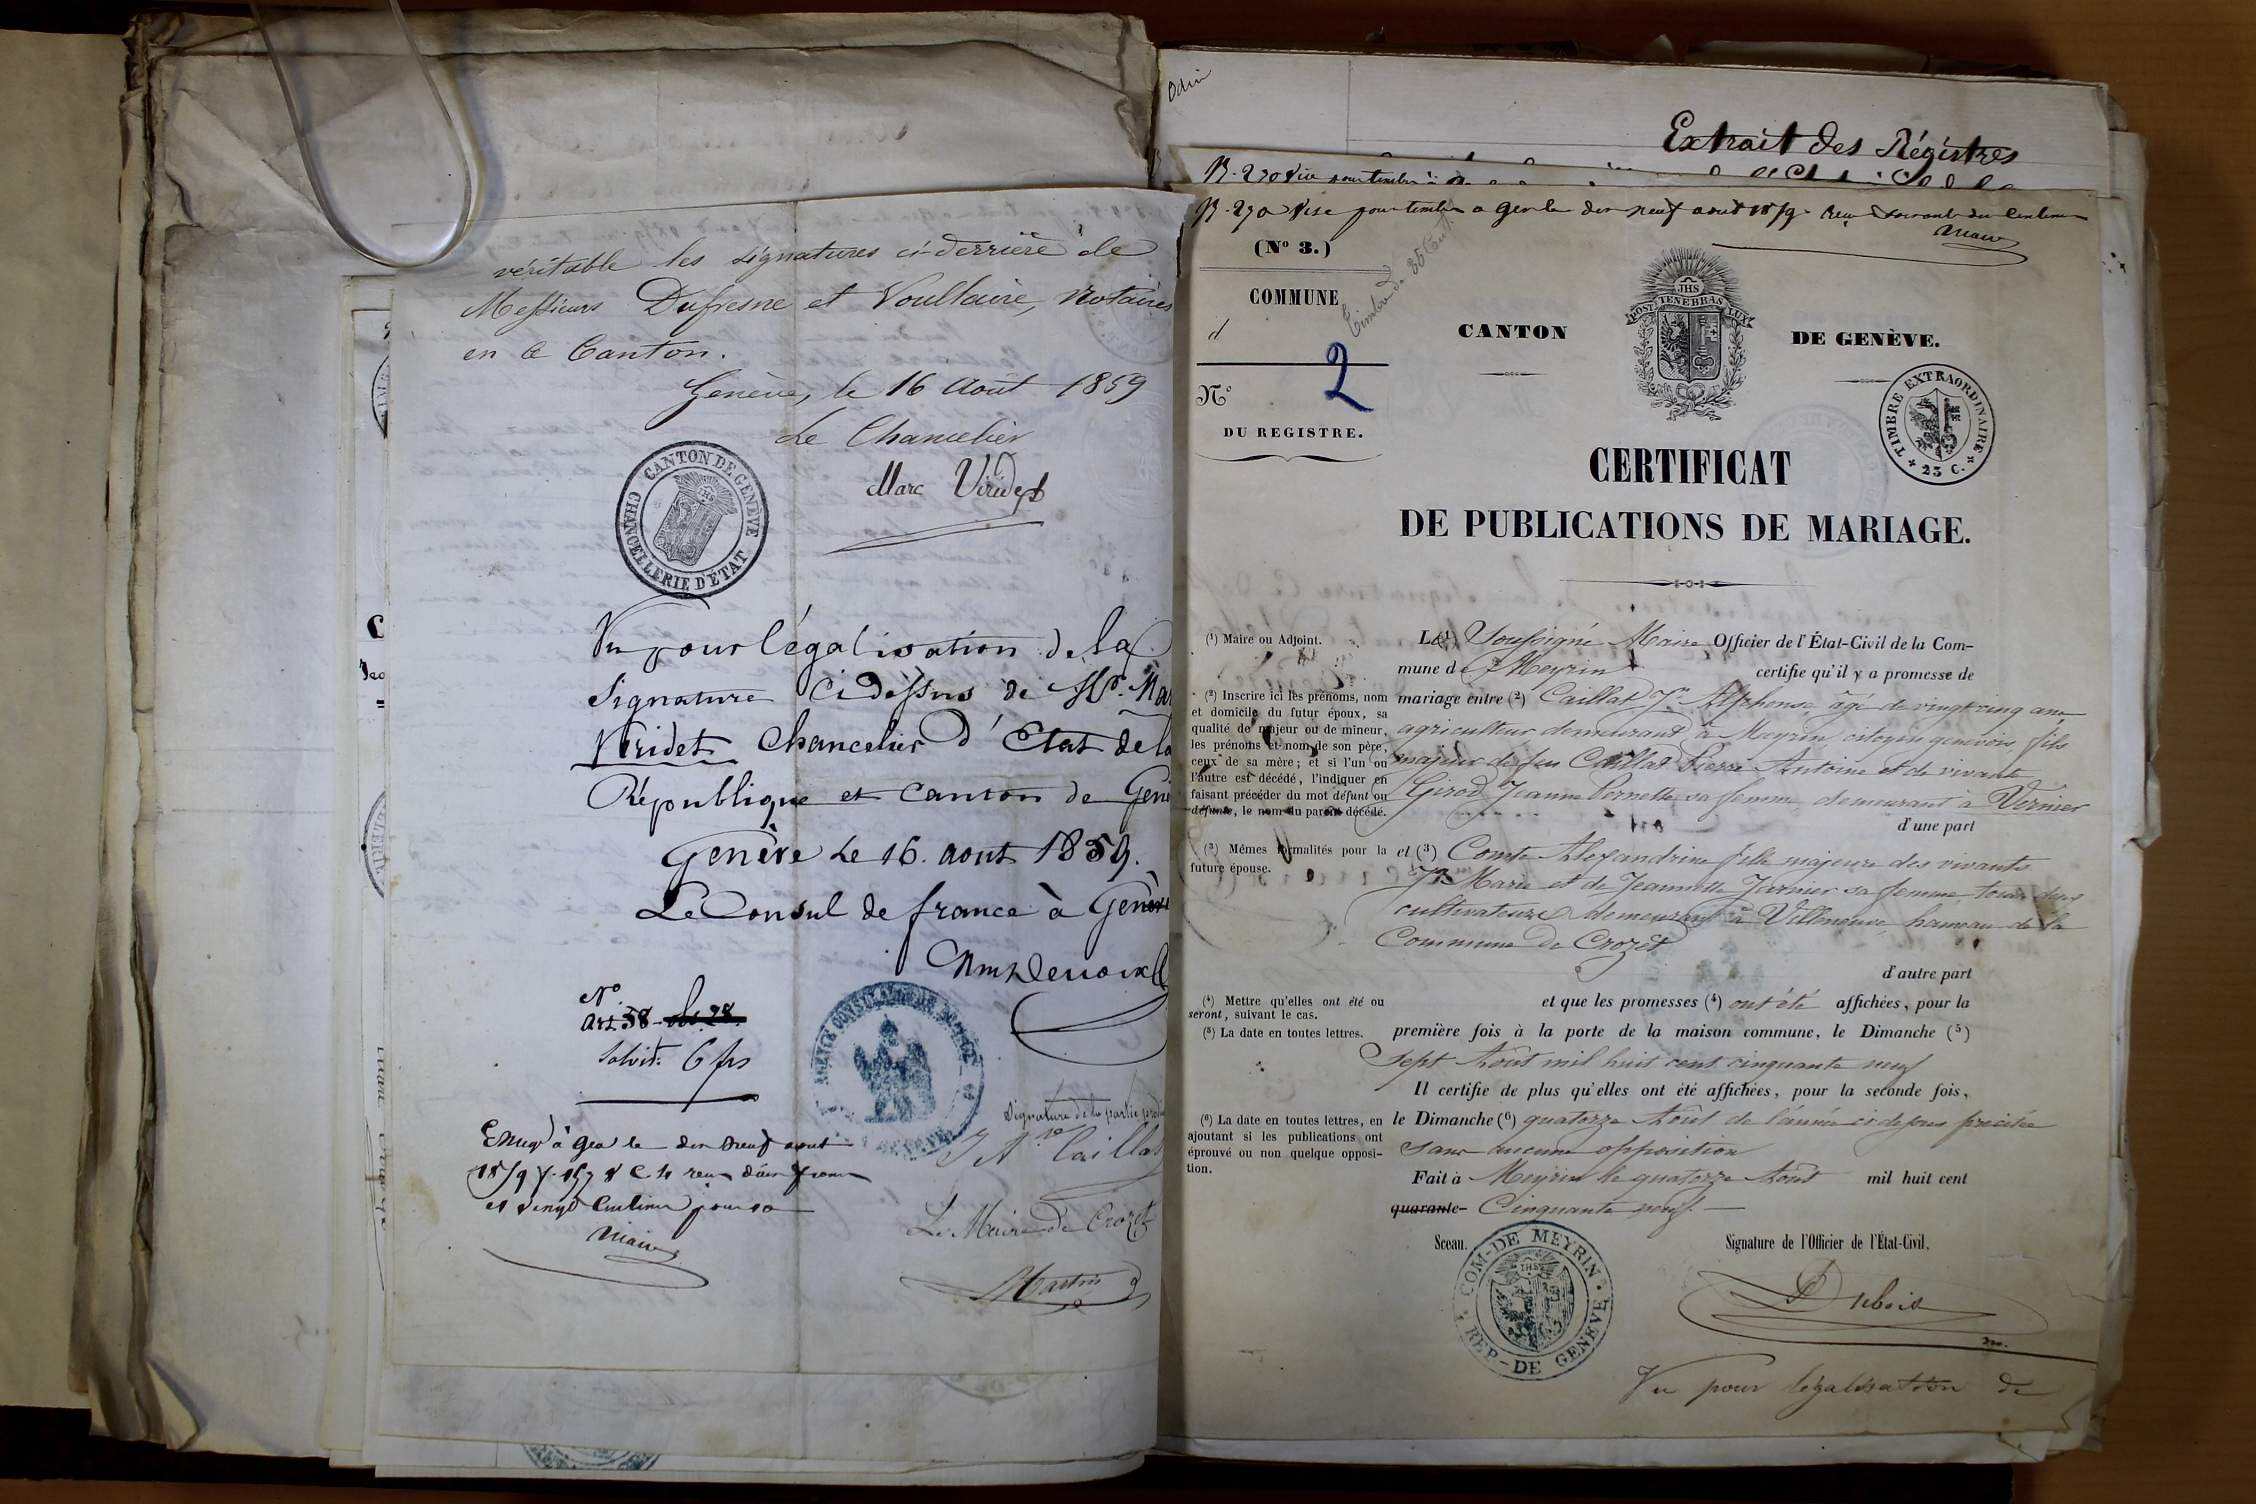 véritable les signatures ci-derrière de
Messieurs Dufresne et Voullaire, Notaires
en ce Canton.
Genève, le 16 Août 1859
Le Chancelier
Marc Viridet
CANTON DE GENÈVE
CHANCELLERIE D'ÉTAT
Vu pour légalisation de la
Signature Ci dessus de Mr. Mar
Viridet Chancelier d'Etat de la
République et Canton de Gene
Genève le 16. aout 1859.
Le Consul de france à Genève
No
Art. 58
Solvit: 6 frs
Signature de la partie
J A Caillat
Le Maire de Crozet
Martin
Odin
Extrait des Régistres
(No 3.)
COMMUNE
d
No 2
DU REGISTRE.
Timbre de 35 Cent
CANTON DE GENÈVE.
JHS
POST TENEBRAS LUX
TIMBRE EXTRAORDINAIRE
25 C.
CERTIFICAT
DE PUBLICATIONS DE MARIAGE.
(1) Maire ou Adjoint.
Le (1) Soussigné Maire Officier de l'État-Civil de la Com-
mune de Meyrin certifie qu'il y a promesse de
(2) Inscrire ici les prénoms, nom
et domicile du futur époux, sa
qualité de majeur ou de mineur,
les prénoms et nom de son père,
ceux de sa mère; et si l'un ou
l'autre est décédé, l'indiquer en
faisant précéder du mot défunt ou
défunte, le nom du parent décédé.
mariage entre (2) Caillat Jn Alphonse, âgé de vingt cinq ans,
agriculteur demeurant à Meyrin citoyen genevois, fils
majeur de feu Caillat Pierre Antoine et de vivante
Girod Jeanne Pernette sa femme, demeurant à Vernier
d'une part
(3) Mêmes formalités pour la
future épouse.
et (3) Comte Alexandrine fille majeure des vivants
Jn Marie et de Jeannette Jarnier sa femme, tous deux
cultivateurs demeurant à Villeneuve, hameau de la
Commune de Crozet
d'autre part
(4) Mettre qu'elles ont été ou
seront, suivant le cas.
(5) La date en toutes lettres.
et que les promesses (4) ont été affichées, pour la
première fois à la porte de la maison commune, le Dimanche (5)
Sept Août mil huit cent cinquante neuf
Il certifie de plus qu'elles ont été affichées, pour la seconde fois,
(6) La date en toutes lettres, en
ajoutant si les publications ont
éprouvé ou non quelque opposi-
tion.
le Dimanche (6) quatorze Août de l'année ci-dessus précitée
Sans aucune opposition
Fait à Meyrin le quatorze Août mil huit cent
quarante- Cinquante neuf.
Sceau.
Signature de l'Officier de l'État-Civil.
COM-DE MEYRIN
RÉP-DE GENÈVE
Dubois
m.
Vu pour légalisation de